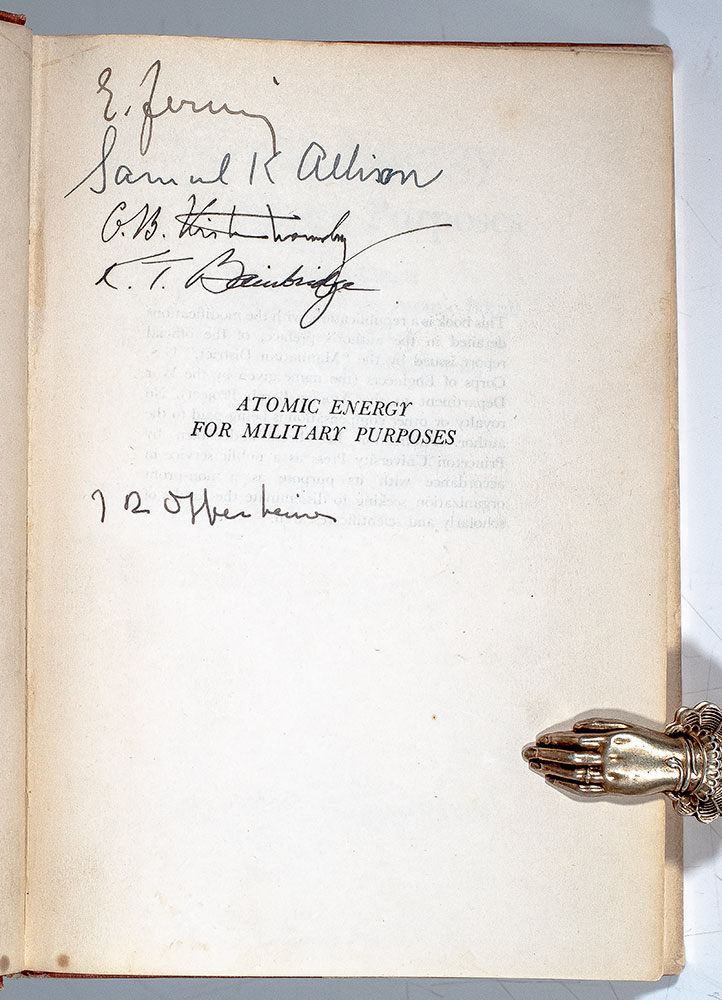 E. Fermi
Samuel K Allison
G. B. Kistiakowsky
K. T. Bainbridge
ATOMIC ENERGY
FOR MILITARY PURPOSES
J R Oppenheimer